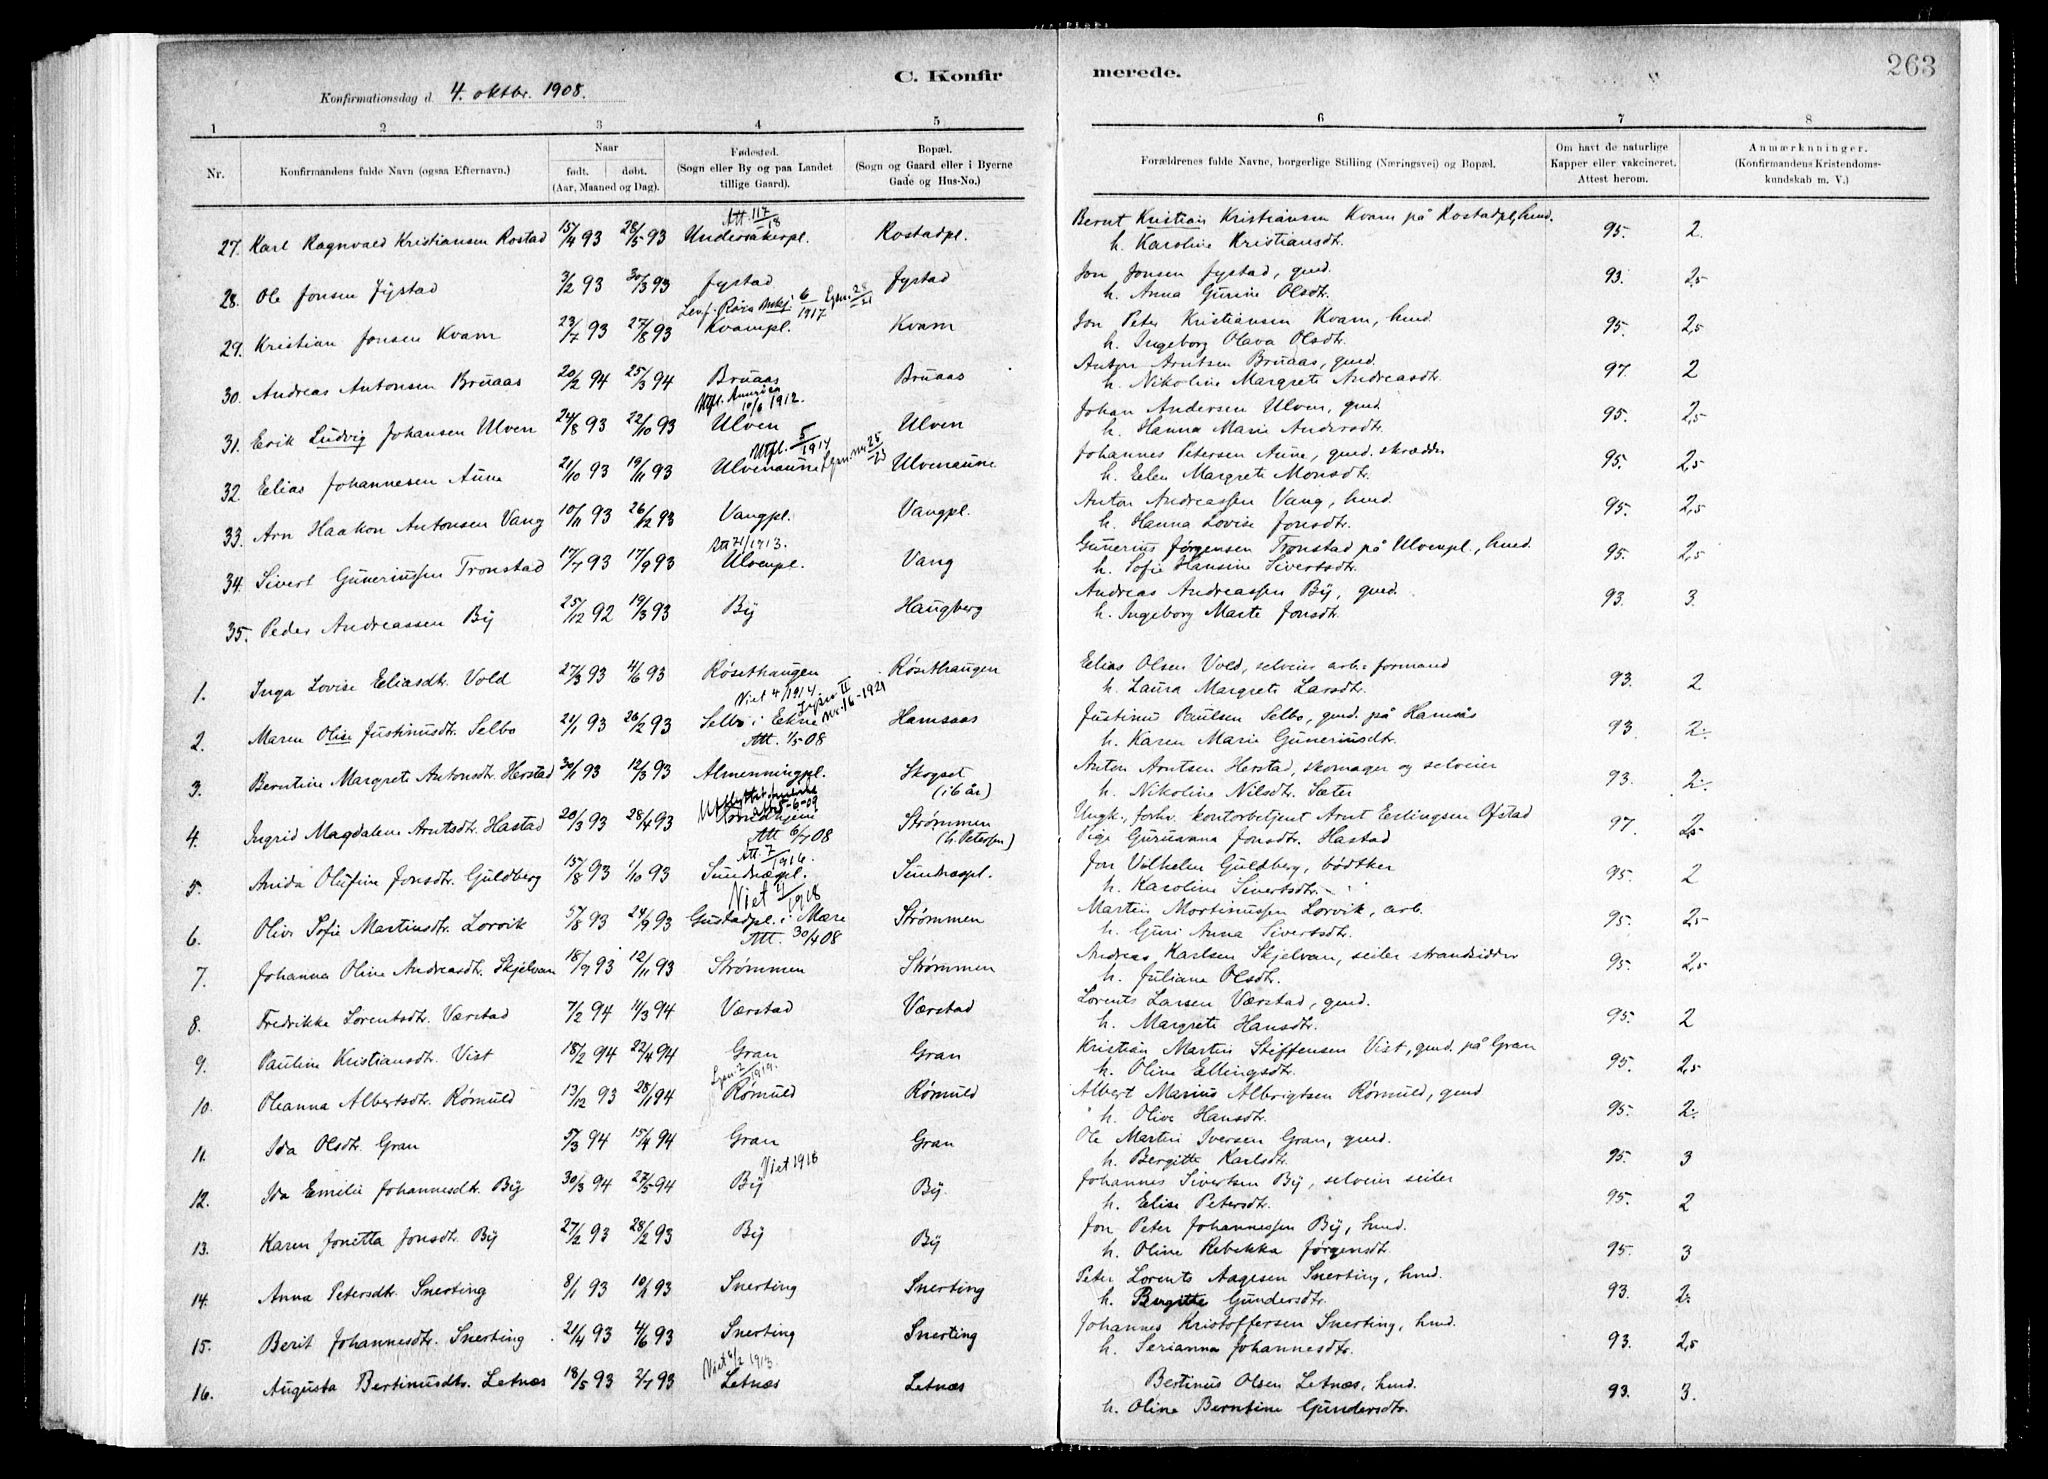 C. Konfirmerede. 263
Konfirmationsdag d. 4. oktbr. 1908.
1 2 3 4 5 6 7 8
Nr. Konfirmandens fulde Navn (ogsaa Efternavn.) Naar født. døbt. (Aar, Maaned og Dag). Fødested. (Sogn eller By og paa Landet tillige Gaard). Bopæl. (Sogn og Gaard eller i Byerne Gade og Hus-No.) Forældrenes fulde Navne, borgerlige Stilling (Næringsvei) og Bopæl. Om havt de naturlige Kapper eller vakcineret. Attest herom. Anmærkninger. (Konfirmandens Kristendomskundskab m. V.)
Att. 11/7 18
27. Karl Ragnvald Kristiansen Rostad 15/4 93 28/5 93 Undersåkerpl. Rostadpl. Bernt Kristian Kristiansen Kvam på Rostadpl., husmd. 95. 2.
h. Karoline Kristiansdtr.
28. Ole Jonsen Jystad 3/2 93 30/3 93 Jystad Jystad Jon Jonsen Jystad, gmd. 93. 2,5
h. Anna Gurine Olsdtr.
29. Kristian Jonsen Kvam 23/7 93 27/8 93 Kvampl. Kvam Jon Peter Kristiansen Kvam, husmd. 95. 2,5
h. Ingeborg Olava Olsdtr.
30. Andreas Antonsen Bruaas 20/2 94 25/3 94 Bruaas Bruaas Anton Arntsen Bruaas, gmd. 97. 2
h. Nikoline Margrete Andreasdtr.
10/6 1912.
31. Erik Ludvig Johansen Ulven 24/8 93 22/10 93 Ulven Ulven Johan Andersen Ulven, gmd. 95. 2,5
h. Hanna Marie Andersdtr.
Utfl. 5/1914
32. Elias Johannesen Aune 21/10 93 19/11 93 Ulvenaune Ulvenaune Johannes Petersen Aune, gmd. skrædder 95. 2,5
h. Elen Margrete Monsdtr.
33. Arn Haakon Antonsen Vang 10/11 93 26/12 93 Vangpl. Vangpl. Anton Andreassen Vang, husmd. 95. 2,5
h. Hanna Lovise Jonsdtr.
34. Sivert Guneriussen Tronstad 17/7 93 17/9 93 Ulvenpl. Vang Gunerius Jørgensen Tronstad på Ulvenpl., husmd. 95. 2,5
h. Sofie Hansine Sivertsdtr.
35. Peder Andreassen By 25/12 92 19/3 93 By Haugberg Andreas Andreassen By, gmd. 93. 3.
h. Ingeborg Marte Jonsdtr.
1. Inga Lovise Eliasdtr. Vold 27/3 93 4/6 93 Røsethaugen Røsethaugen Elias Olsen Vold, selveier arb. formand 93. 2
h. Laura Margrete Larsdtr.
Viet 4/1914.
2. Maren Olise Justinusdtr. Selbo 21/1 93 26/2 93 Selbo i Ekne Hamsaas Justinus Paulsen Selbo, gmd. på Hamsås 93 2
Att. 1/5 08 h. Karen Marie Guneriusdtr.
3. Berntine Margrete Antonsdtr. Herstad 30/1 93 12/3 93 Almenningpl. Skogset (i 6 år) Anton Arntsen Herstad, skomager og selveier 93. 2
h. Nikoline Nilsdtr. Sæter
4. Ingrid Magdalene Arntsdtr. Hastad 20/3 93 28/4 93 Trondhjem Strømmen (h. Petersen) Ungk., forhv. kontorbetjent Arnt Erlingsen Ofstad 97. 2,5
Att. 6/7 08 Pige Guruanna Jonsdtr. Hastad
Att. 7/1916.
5. Anida Olufine Jonsdtr. Guldberg 15/8 93 1/10 93 Sundnæspl. Sundnæspl. Jon Vilhelm Guldberg, bødtker 95. 2
h. Karoline Sivertsdtr.
Viet 4/1918
6. Olive Sofie Martinsdtr. Lorvik 5/8 93 24/9 93 Gustadpl. i Mære Strømmen Martin Mortinussen Lorvik, arb. 95. 2,5
Att. 30/4 08 h. Guri Anna Sivertsdtr.
7. Johanna Oline Andreasdtr. Skjelvan 18/9 93 12/11 93 Strømmen Strømmen Andreas Karlsen Skjelvan, seiler strandsidder 95. 2,5
h. Juliane Olsdtr.
8. Fredrikke Lorentsdtr. Værstad 7/2 94 11/3 94 Værstad Værstad Lorents Larsen Værstad, gmd. 95. 2
h. Margrete Hansdtr.
9. Pauline Kristiansdtr. Vist 18/2 94 22/4 94 Gran Gran Kristian Martin Steffensen Vist, gmd. på Gran 95. 2,5
h. Oline Ellingsdtr.
Lysn. 2/1919.
10. Oleanna Albertsdtr. Rømuld 13/12 93 28/1 94 Rømuld Rømuld Albert Marius Albrigtsen Rømuld, gmd 95. 2
h. Olive Hansdtr.
11. Ida Olsdtr. Gran 5/3 94 15/4 94 Gran Gran Ole Martin Iversen Gran, gmd. 95. 3
h. Bergitte Karlsdtr.
Viet 1916
12. Ida Emilie Johannesdtr. By 30/3 94 27/5 94 By By Johannes Sivertsen By, selveier seiler 95. 2
h. Elise Petersdtr.
13. Karen Jonetta Jonsdtr. By 27/2 93 28/2 93 By By Jon Peter Johannessen By, husmd. 95. 3
h. Oline Rebekka Jørgensdtr
14. Anna Petersdtr. Snerting 8/1 93 Snerting Snerting Peter Lorents Aagesen Snerting, husmd. 93. 2
h. Bergitte Gundersdtr.
15. Berit Johannesdtr. Snerting 21/4 93 4/6 93 Snerting Snerting Johannes Kristoffersen Snerting, husmd. 93. 2,5
h. Serianna Johannesdtr.
Viet 1913.
16. Augusta Bertinusdtr. Letnæs 18/5 93 2/7 93 Letnæs Letnæs Bertinus Olsen Letnæs, husmd. 93. 3.
h. Oline Berntine Gundersdtr.